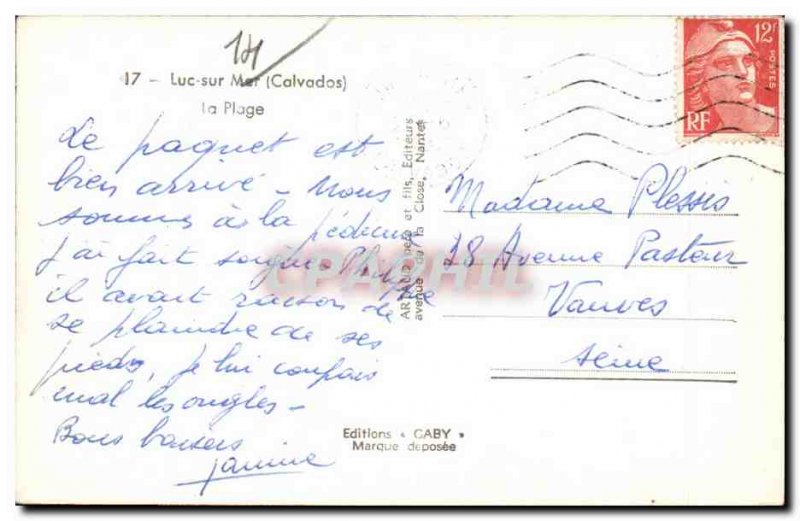 14
17 - Luc-sur Mer (Calvados)
La Plage
Le paquet est
bien arrivé - Nous
sommes à la pédicure
j'ai fait soigner Philippe
il avait raison de
se plaindre de ses
pieds, je lui coupais
mal les ongles -
Bons baisers
Janine
ARTAUD père et fils, Editeurs
avenue de la Close, Nantes
Editions « GABY »
Marque déposée
12F
POSTES
RF
Madame Plessis
28 Avenue Pasteur
Vanves
Seine
CPAPHIL